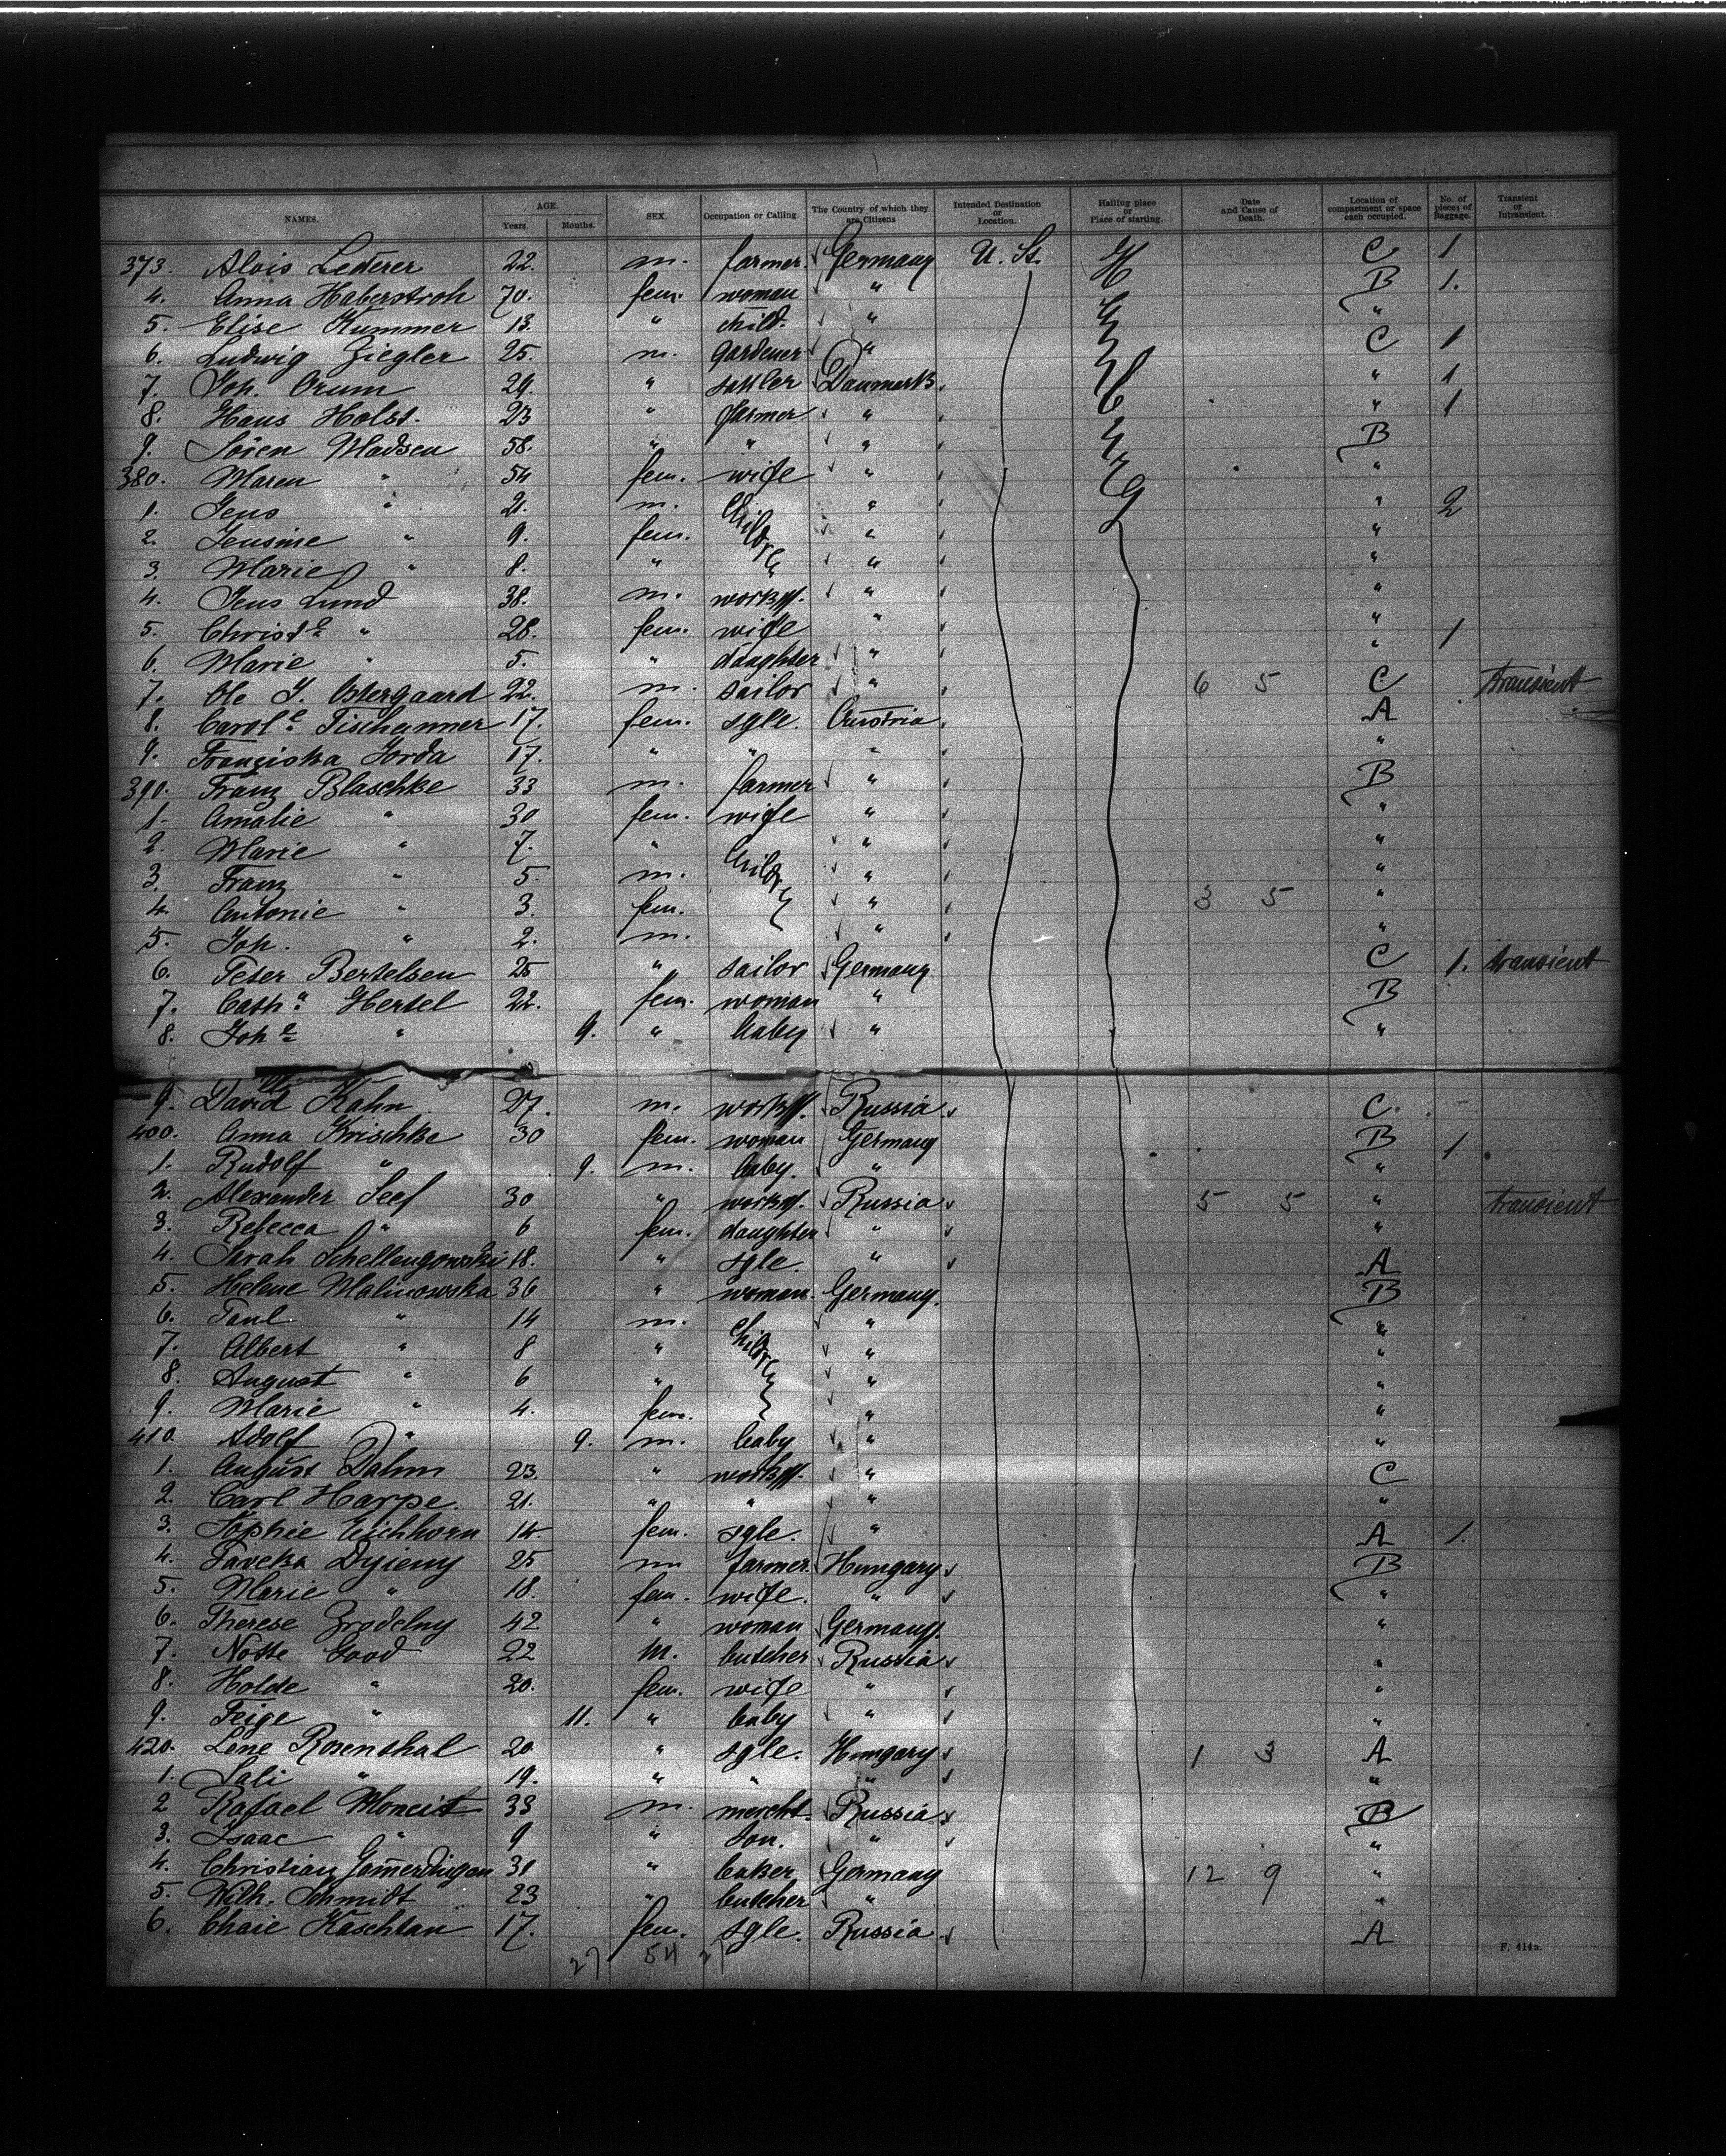 NAMES. AGE. Years. Months. SEX. Occupation or Calling. The Country of which they are Citizens Intended Destination or Location. Hailing place or Place of starting. Date and Cause of Death. Location of compartment or space each occupied. No. of pieces of Baggage. Transient or Intransient.
373. Alois Lederer 22. m. farmer. Germany U. St. C 1
4. Anna Haberstroh 70. fem. woman " B 1.
5. Elise Kummer 13. " child. " "
6. Ludwig Ziegler 25. m. gardener " C 1
7. Joh. Orum 29. " sattler Danmark " 1
8. Hans Holst. 23 " farmer " " 1
9. Sören Madsen 58. " " " B
380. Maren " 54 fem. wife " "
1. Jens " 21. m. Children " " 2
2. Jensine " 9. fem. " "
3. Marie " 8. " " "
4. Jens Lund 38. m. workm. " "
5. Christe " 28. fem. wife " " 1
6. Marie " 5. " daughter " "
7. Ole J. Ostergaard 22. m. sailor " 6 5 C transient
8. Carole Tischanner 17. fem. sgle. Austria A
9. Franziska Jorda 17. " " " "
390. Franz Blaschke 33 m. farmer " B
1. Amalie " 30 fem. wife " "
2. Marie " 7. " Children " "
3. Franz " 5. m. " "
4. Antonie " 3. fem. " 3 5 "
5. Joh. " 2. m. " "
6. Peter Bertelsen 25 " sailor Germany C 1. transient
7. Catha Hertel 22. fem. woman " B
8. Johe " 9. " baby " "
9. David Kahn 27. m. workm. Russia C.
400. Anna Krischke 30 fem. woman Germany B 1.
1. Rudolf " 9. m. baby. " "
2. Alexander Seef 30 " workm. Russia 5 5 " transient
3. Rebecca " 6 fem. daughter " "
4. Sarah Schellengowski 18. " sgle. " A
5. Helene Malinowska 36 " woman. Germany. B
6. Paul " 14 m. Children " "
7. Albert " 8 " " "
8. August " 6 " " "
9. Marie " 4. fem. " "
410. Adolf " 9. m. baby " "
1. August Dahm 23. " workm. " C
2. Carl Harpe. 21. " " " "
3. Sophie Eichhorn 14. fem. sgle. " A 1.
4. Pavcka Dzieny 25 m farmer. Hungary B
5. Marie " 18. fem. wife. " "
6. Therese Zrodelny 42 " woman Germany. "
7. Notte Good 22 M. butcher Russia "
8. Holde " 20. fem. wife " "
9. Feige " 11. " baby " "
420. Lene Rosenthal 20 " sgle. Hungary 1 3 A
1. Sali " 19. " " " "
2 Rafael Moncit 33 m. mercht. Russia B
3. Isaac " 9 " son. " "
4. Christian Gamerdingen 31 " baker Germany 12 9 "
5. Wilh. Schmidt 23 " butcher " "
6. Chaie Kaschtan 17. fem. sgle. Russia A
27 54 27
F. 414a.